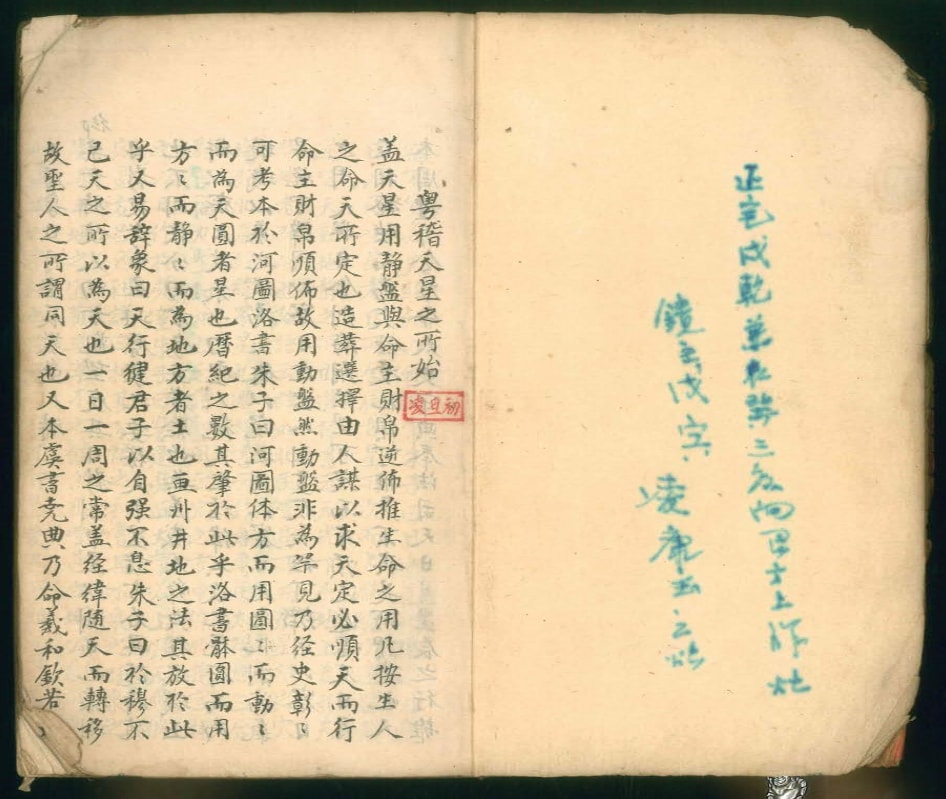 正宅戌乾兼
二
向
士上作灶
鏡
戊
凌
之
粤稽天星之所始
凌旦初
盖天星用静盤與命主財帛逆佈推生命之用凡按生人
之命天所定也造葬選擇由人謀以求天定必順天而行
命主財帛順佈故用動盤然動盤非為罕見乃経史彰〻
可考本於河圖洛書朱子曰河圖体方而用圓〻而動〻
而為天圓者星也曆紀之數其肇於此乎洛書體圓而用
方〻而静〻而為地方者土也画州井地之法其放於此
乎又易辞象曰天行健君子以自强不息朱子曰於穆不
已天之所以為天也一日一周之常盖経緯随天而轉移
故聖人之所謂同天也又本虞書尭典乃命羲和欽若